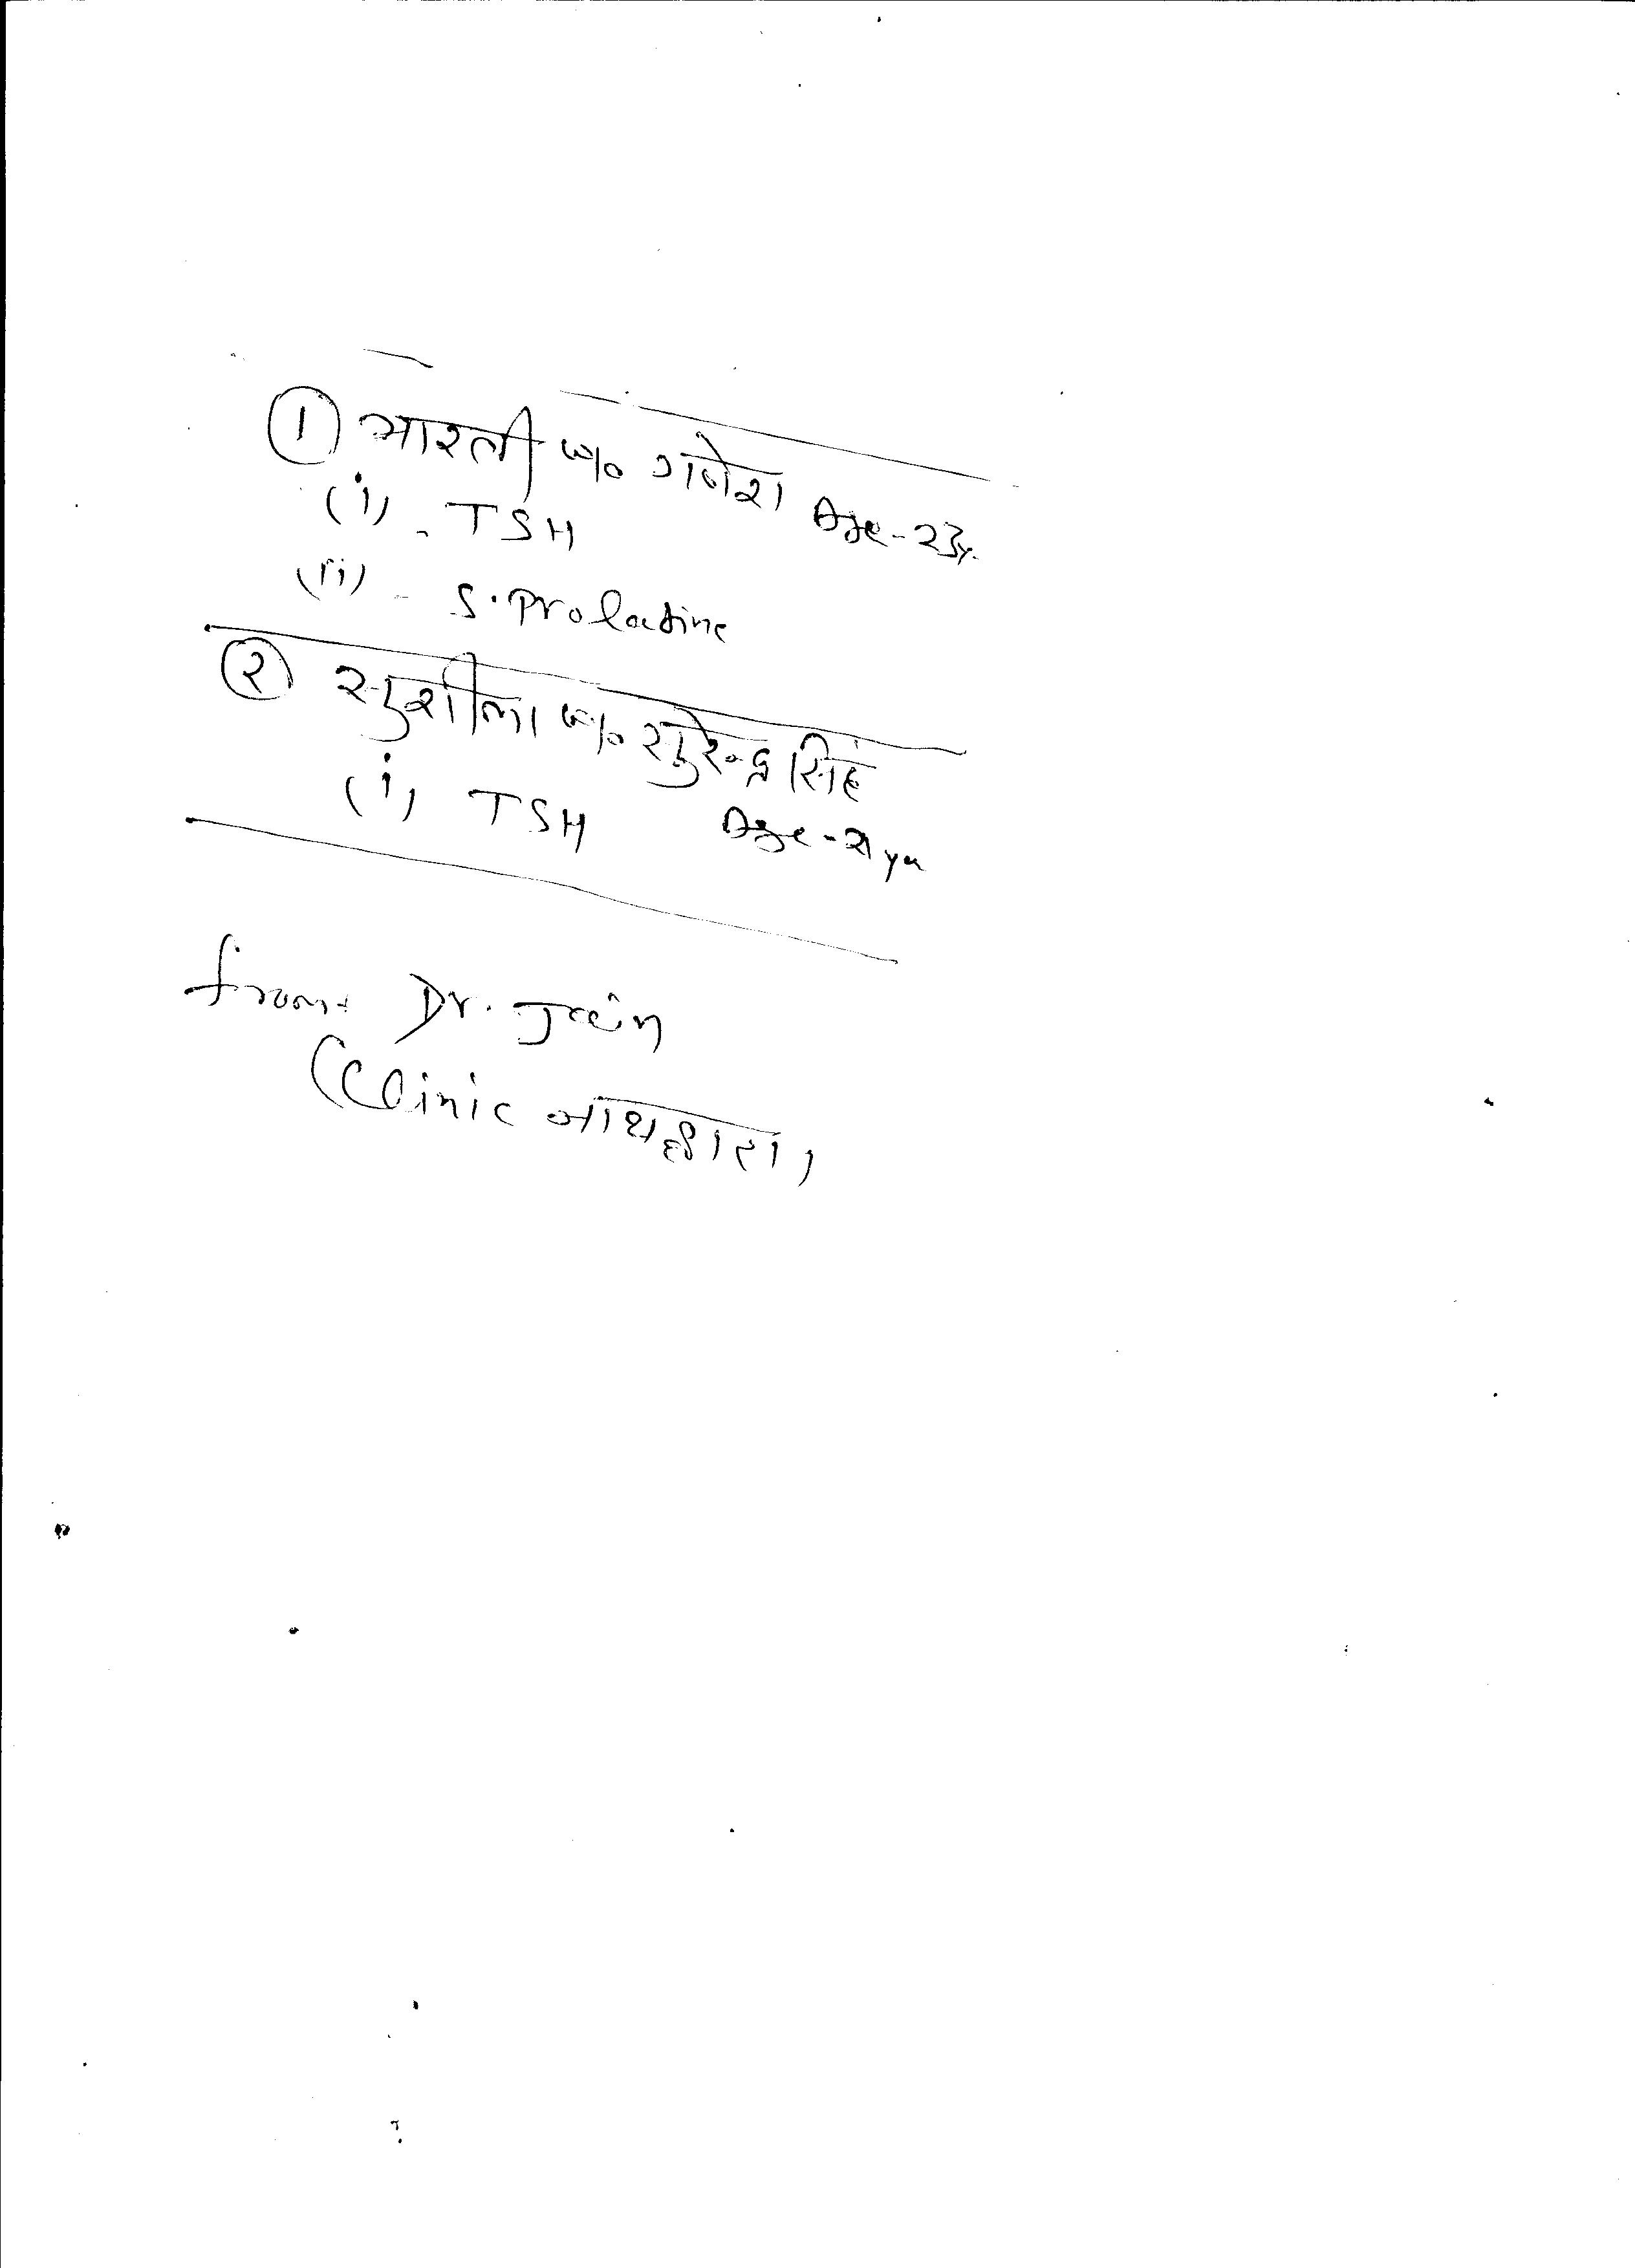 ① भारती w/o गणेश Age-23y.
(i) - TSH
(ii) - S. Prolactine
② सुशीला w/o सुरेन्द्र सिंह
(i) TSH Age - 21 yr
from Dr. Jain
(Clinic नाथद्वारा)